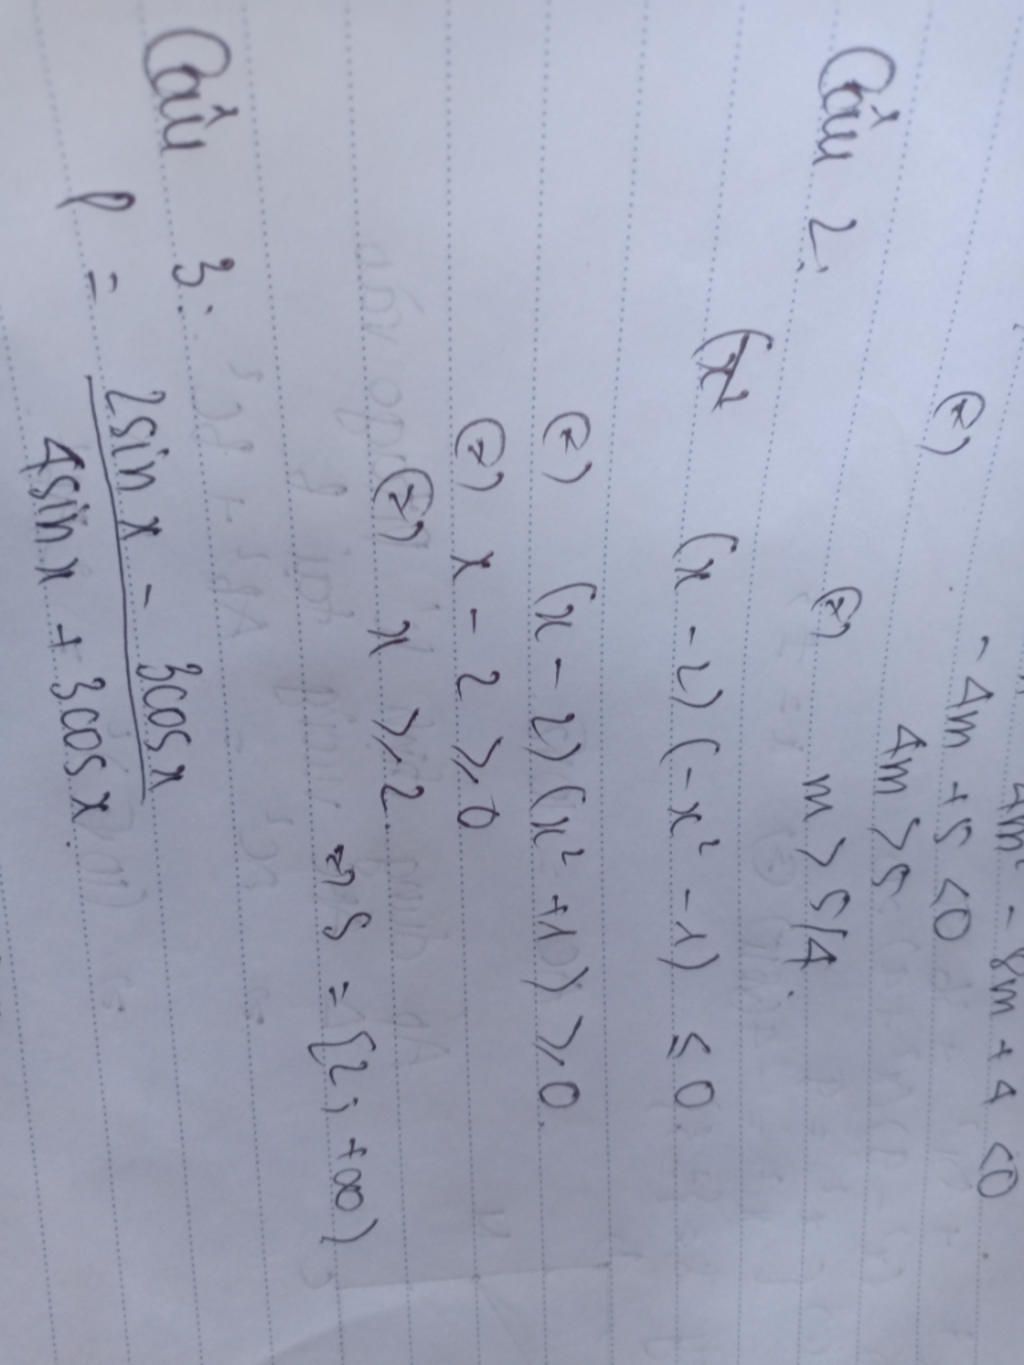 4m² - 8m + 4 < 0
(=) - 4m + 5 < 0
4m > 5
(=) m > 5/4
Câu 2:
(x - 2)(-x² - 1) ≤ 0
(=) (x - 2)(x² + 1) ≥ 0.
(=) x - 2 ≥ 0
(=) x ≥ 2
=> S = [2; +∞)
Câu 3:
P = 2sin x - 3cos x
4sin x + 3cos x.